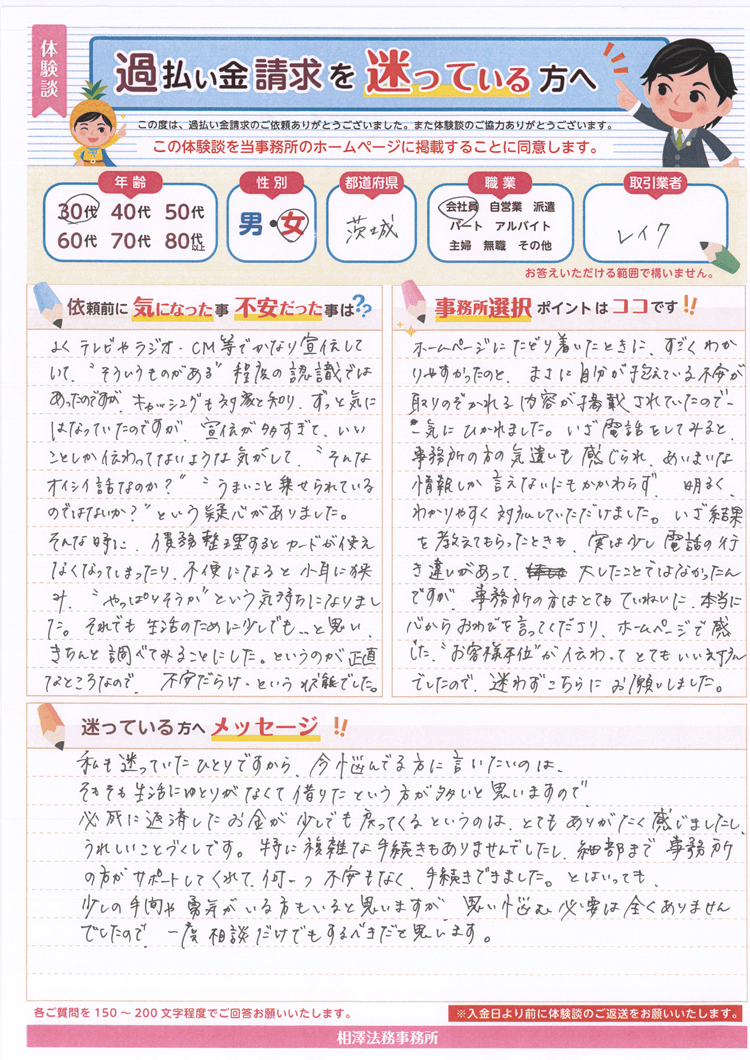 体験談
過払い金請求を迷っている方へ
この度は、過払い金請求のご依頼ありがとうございました。また体験談のご協力ありがとうございます。
この体験談を当事務所のホームページに掲載することに同意します。
年齢
30代 40代 50代
60代 70代 80代以上
性別
男・女
都道府県
茨城
職業
会社員 自営業 派遣
パート アルバイト
主婦 無職 その他
取引業者
レイク
お答えいただける範囲で構いません。
依頼前に気になった事 不安だった事は??
よくテレビやラジオ・CM等でかなり宣伝して
いて、“そういうものがある”程度の認識では
あったのですが、キャッシングも対象と知り、ずっと気に
はなっていたのですが、宣伝が多すぎて、いい
ことしか伝わってないような気がして、“そんな
オイシイ話なのか?”“うまいこと乗せられている
のではないか?”という疑心がありました。
そんな時に、債務整理するとカードが使え
なくなってしまったり、不便になると小耳に挟
み、“やっぱりそうか”という気持ちになりまし
た。それでも生活のために少しでも…と思い、
きちんと調べてみることにした。というのが正直
なところなので、不安だらけ、という状態でした。
事務所選択ポイントはココです!!
ホームページにたどり着いたときに、すごくわか
りやすかったのと、まさに自分が抱えている不安が
取りのぞかれる内容が掲載されていたので
一気にひかれました。いざ電話をしてみると、
事務所の方の気遣いも感じられ、あいまいな
情報しか言えないにもかかわらず、明るく、
わかりやすく対応していただけました。いざ結果
を教えてもらったときも、実は少し電話の行
き違いがあって、大したことではなかったん
ですが、事務所の方はとてもていねいに、本当に
心からおわびを言ってくださり、ホームページで感
じた、“お客様本位”が伝わってとてもいい対応
でしたので、迷わずこちらにお願いしました。
迷っている方へメッセージ!!
私も迷っていたひとりですから、今悩んでる方に言いたいのは、
そもそも生活にゆとりがなくて借りたという方が多いと思いますので
必死に返済したお金が少しでも戻ってくるというのは、とてもありがたく感じましたし、
うれしいことづくしです。特に複雑な手続きもありませんでしたし、細部まで事務所
の方がサポートしてくれて、何一つ不安もなく、手続きできました。とはいっても、
少しの手間や勇気がいる方もいると思いますが、思い悩む必要は全くありません
でしたので、一度相談だけでもするべきだと思います。
各ご質問を150〜200文字程度でご回答お願いいたします。
※入金日より前に体験談のご返送をお願いいたします。
相澤法務事務所